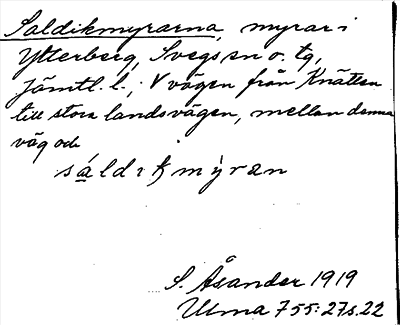 Saldikmyrarna, myrar i
Ytterberg, Svegs sn o. tg,
Jämtl. l.; V vägen från Knätten
till stora landsvägen, mellan denna
väg och
sáldıkmỳran
S. Åsander 1919
Ulma 755:27 s. 22